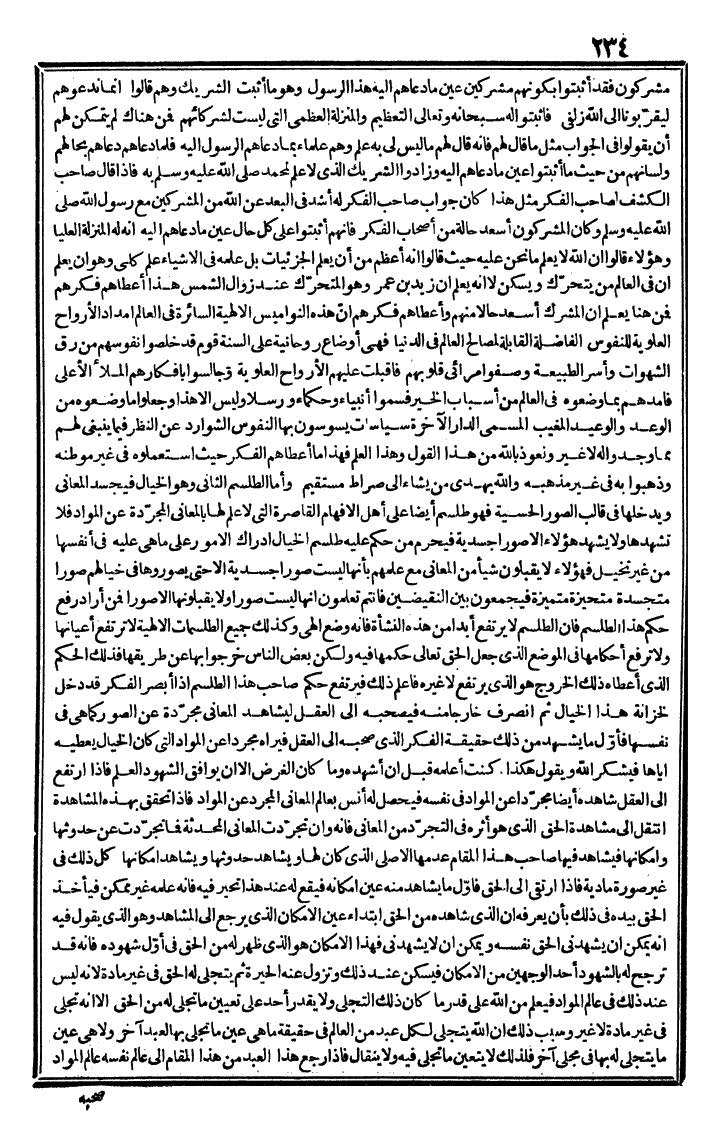 ٢٣٤
مشركون فقد أثبتوا بكونهم مشركين عين مادعاهم اليه هذا الرسول وهو ما أثبت الشريك وهم قالوا انما ندعوهم
ليقربونا الى الله زلفى فاثبتوا له سبحانه وتعالى التعظيم والمنزلة العظمى التى ليست لشركائهم فمن هناك لم يتمكن لهم
أن يقولوا فى الجواب مثل ما قال لهم فانه قال لهم ماليس لى به علم وهم علماء بمادعاهم الرسول اليه فلمادعاهم دعاهم بحالهم
ولسانهم من حيث ما أثبتوا عين مادعاهم اليه وزادوا الشريك الذى لا علم لمحمد صلى الله عليه وسلم به فاذا قال صاحب
الكشف لصاحب الفكر مثل هذا كان جواب صاحب الفكر له أشد فى البعد عن الله من المشركين مع رسول الله صلى
الله عليه وسلم وكان المشركون أسعد حالة من أصحاب الفكر فانهم أثبتوا على كل حال عين مادعاهم اليه انه له المنزلة العليا
وهؤلاء قالوا ان الله لا يعلم مانحن عليه حيث قالوا انه أعظم من أن يعلم الجزئيات بل علمه فى الاشياء علم كلى وهو ان يعلم
ان فى العالم من يتحرّك ويسكن لا انه يعلم ان زيد بن عمر وهو المتحرك عند زوال الشمس هذا أعطاهم فكرهم
فمن هنا يعلم ان المشرك أسعد حالا منهم وأعطاهم فكرهم انّ هذه النواميس الالهية السائرة فى العالم امداد الأرواح
العلوية للنفوس الفاضلة القابلة لمصالح العالم فى الدنيا فهى أوضاع روحانية على السنة قوم قد خلصوا نفوسهم من رق
الشهوات وأسر الطبيعة وصفوا مرائى قلوبهم فاقبلت عليهم الأرواح العلوية وجالسوا بافكارهم الملأ الأعلى
فامدهم بما وضعوه فى العالم من أسباب الخير فسموا أنبياء وحكماء ورسلا وليس الا هذا وجعلوا ما وضعوه من
الوعد والوعيد المغيب المسمى الدار الآخرة سياسات يسوسون بها النفوس الشوارد عن النظر فيما ينبغى لهم
بما وجدوا له لا غير ونعوذ بالله من هذا القول وهذا العلم فهذا ما أعطاهم الفكر حيث استعملوه فى غير موطنه
وذهبوا به فى غير مذهبه والله يهدى من يشاء الى صراط مستقيم وأما الطلسم الثانى وهو الخيال فيجسد المعانى
ويدخلها فى قالب الصور الحسية فهو طلسم أيضا على أهل الافهام القاصرة التى لا علم لها بالمعانى المجرّدة عن المواد فلا
تشهدها ولا يشهد هؤلاء الاصورا جسدية فيحرم من حكم عليه طلسم الخيال ادراك الامور على ماهى عليه فى أنفسها
من غير تخيل فهؤلاء لا يقبلون شيأ من المعانى مع علمهم بأنها ليست صورا جسدية الاحتى يصوروها فى خيالهم صورا
متجسدة متحيزة متميزة فيجمعون بين النقيضين فانتم تعلمون انها ليست صورا ولا يقبلونها الاصورا فمن أراد رفع
حكم هذا الطلسم فان الطلسم لا يرتفع أبدا من هذه النشأة فانه وضع الهى وكذلك جميع الطلسمات الالهية لا ترتفع أعيانها
ولا ترفع أحكامها فى الموضع الذى جعل الحق تعالى حكمها فيه ولكن بعض الناس خرجوا بها عن طريقها فذلك الحكم
الذى أعطاه ذلك الخروج هو الذى يرتفع لا غيره فاعلم ذلك فيرتفع حكم صاحب هذا الطلسم اذا أبصر الفكر قد دخل
لخزانة هذا الخيال ثم انصرف خارجا منه فيصحبه الى العقل ليشاهد المعانى مجرّدة عن الصور كماهى فى
نفسها فأوّل ما يشهد من ذلك حقيقة الفكر الذى صحبه الى العقل فيراه مجردا عن المواد التى كان الخيال يعطيه
اياها فيشكر الله ويقول هكذا. كنت أعلمه قبل ان أشهده وما كان الغرض الا ان يوافق الشهود العلم فاذا ارتفع
الى العقل شاهده أيضا مجرّدا عن المواد فى نفسه فيحصل له أنس بعالم المعانى المجرد عن المواد فاذا تحقق بهذه المشاهدة
انتقل الى مشاهدة الحق الذى هو أثره فى التجرّد من المعانى فانه وان تجرّدت المعانى المحدثة فاتجرّدت عن حدوثها
وامكانها فيشاهد فيها صاحب هذا المقام عدمها الاصلى الذى كان لها ويشاهد حدوثها ويشاهد امكانها كل ذلك فى
غير صورة مادية فاذا ارتقى الى الحق فاوّل ما يشاهد منه عين امكانه فيقع له عند هذا تحير فيه فانه علمه غير ممكن فيأخذ
الحق بيده فى ذلك بأن يعرفه ان الذى شاهده من الحق ابتداء عين الامكان الذى يرجع الى المشاهد وهو الذى يقول فيه
انه يمكن ان يشهدنى الحق نفسه ويمكن ان لا يشهدنى فهذا الامكان هو الذى ظهر له من الحق فى أوّل شهوده فانه قد
ترجح له بالشهود أحد الوجهين من الامكان فيسكن عند ذلك وتزول عنه الحيرة ثم يتجلى له الحق فى غير مادة لانه ليس
عند ذلك فى عالم المواد فيعلم من الله على قدر ما كان ذلك التجلى ولا يقدر أحد على تعيين ما تجلى له من الحق الا انه تجلى
فى غير مادة لا غير وسبب ذلك ان الله يتجلى لكل عبد من العالم فى حقيقة ماهى عين ما تجلى بها لعبد آخر ولا هى عين
ما يتجلى له بها فى مجلى آخر فلذلك لا يتعين ما تجلى فيه ولا ينقال فاذا رجع هذا العبد من هذا المقام الى عالم نفسه عالم المواد
صحبه